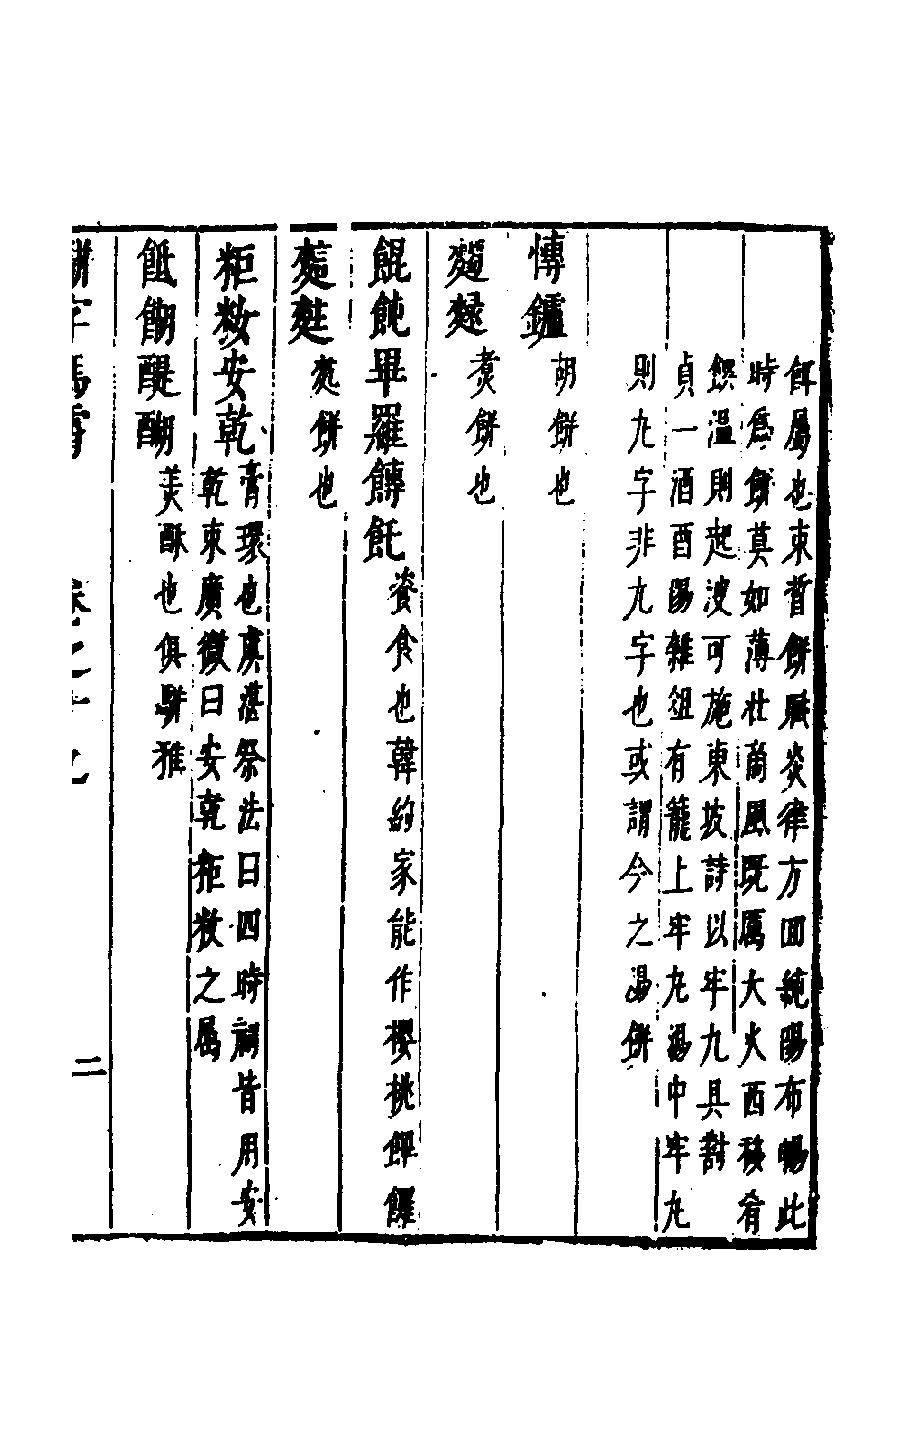 餌屬也束晳餅賦炎律方回純陽布暢此
時為餅莫如薄壯商風既厲大火西移肴
饌溫則起溲可施東坡詩以牢九具對
貞一酒酉陽雜俎有籠上牢丸湯中牢丸
則九字非丸字也或謂今之湯餅
愽鑪 胡餅也
煮餅也
餛飩畢羅餺飥 餈食也韓約家能作櫻桃饆饠
餅也
粔籹安乾 膏環也虞諶祭法曰四時祠皆用安
乾束廣微曰安乾粔籹之屬
餬醍醐 美酥也俱駢雅
卷之十九 二